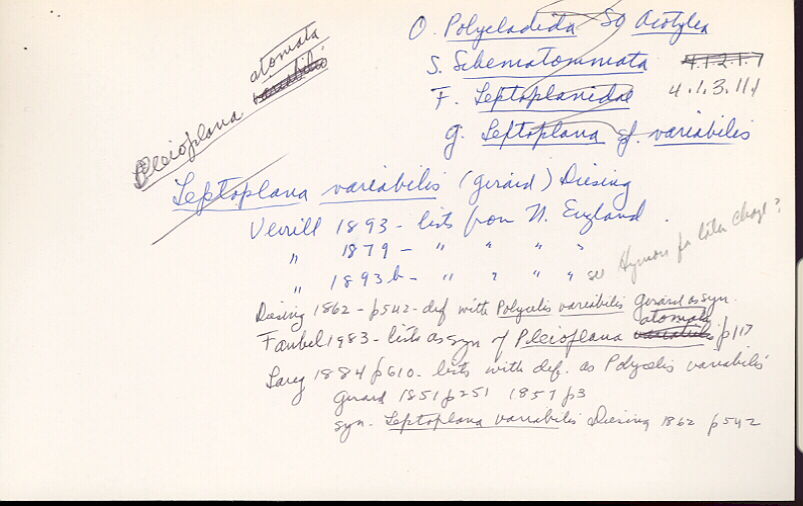 O. Polycladida SO Acotylea
S. Schematommata 4.1.2.1.7
F. Leptoplanidae 4.1.3.11.1
G. Leptoplana cf. variabilis
atomata
Pleioplana variabilis
Leptoplana variabilis (Girard) Diesing
Verrill 1893 - lists from N. England
" 1879 - " " " "
" 1893b - " " " " see Hyman for later change?
Diesing 1862 - p542 - def with Polycelis variabilis Girard as syn.
atomata
Faubel 1983 - lists as syn of Pleioplana variabilis p117
1884 p610 - lists with def. as Polycelis variabilis
Girard 1851 p251 1857 p3
syn. Leptoplana variabilis Diesing 1862 p542